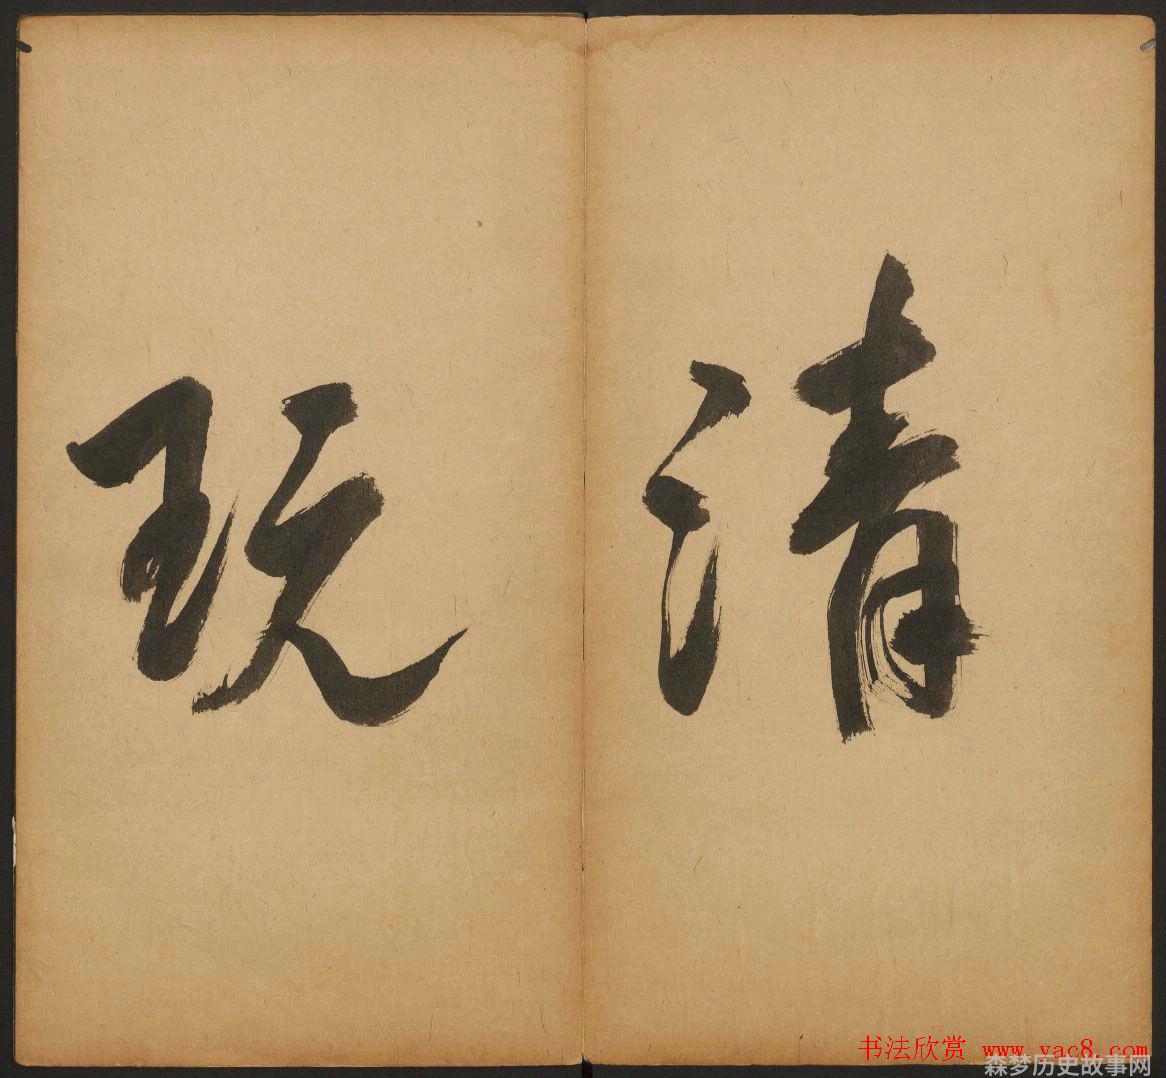 清
玩
书法欣赏 www.yac8.com
森梦历史故事网